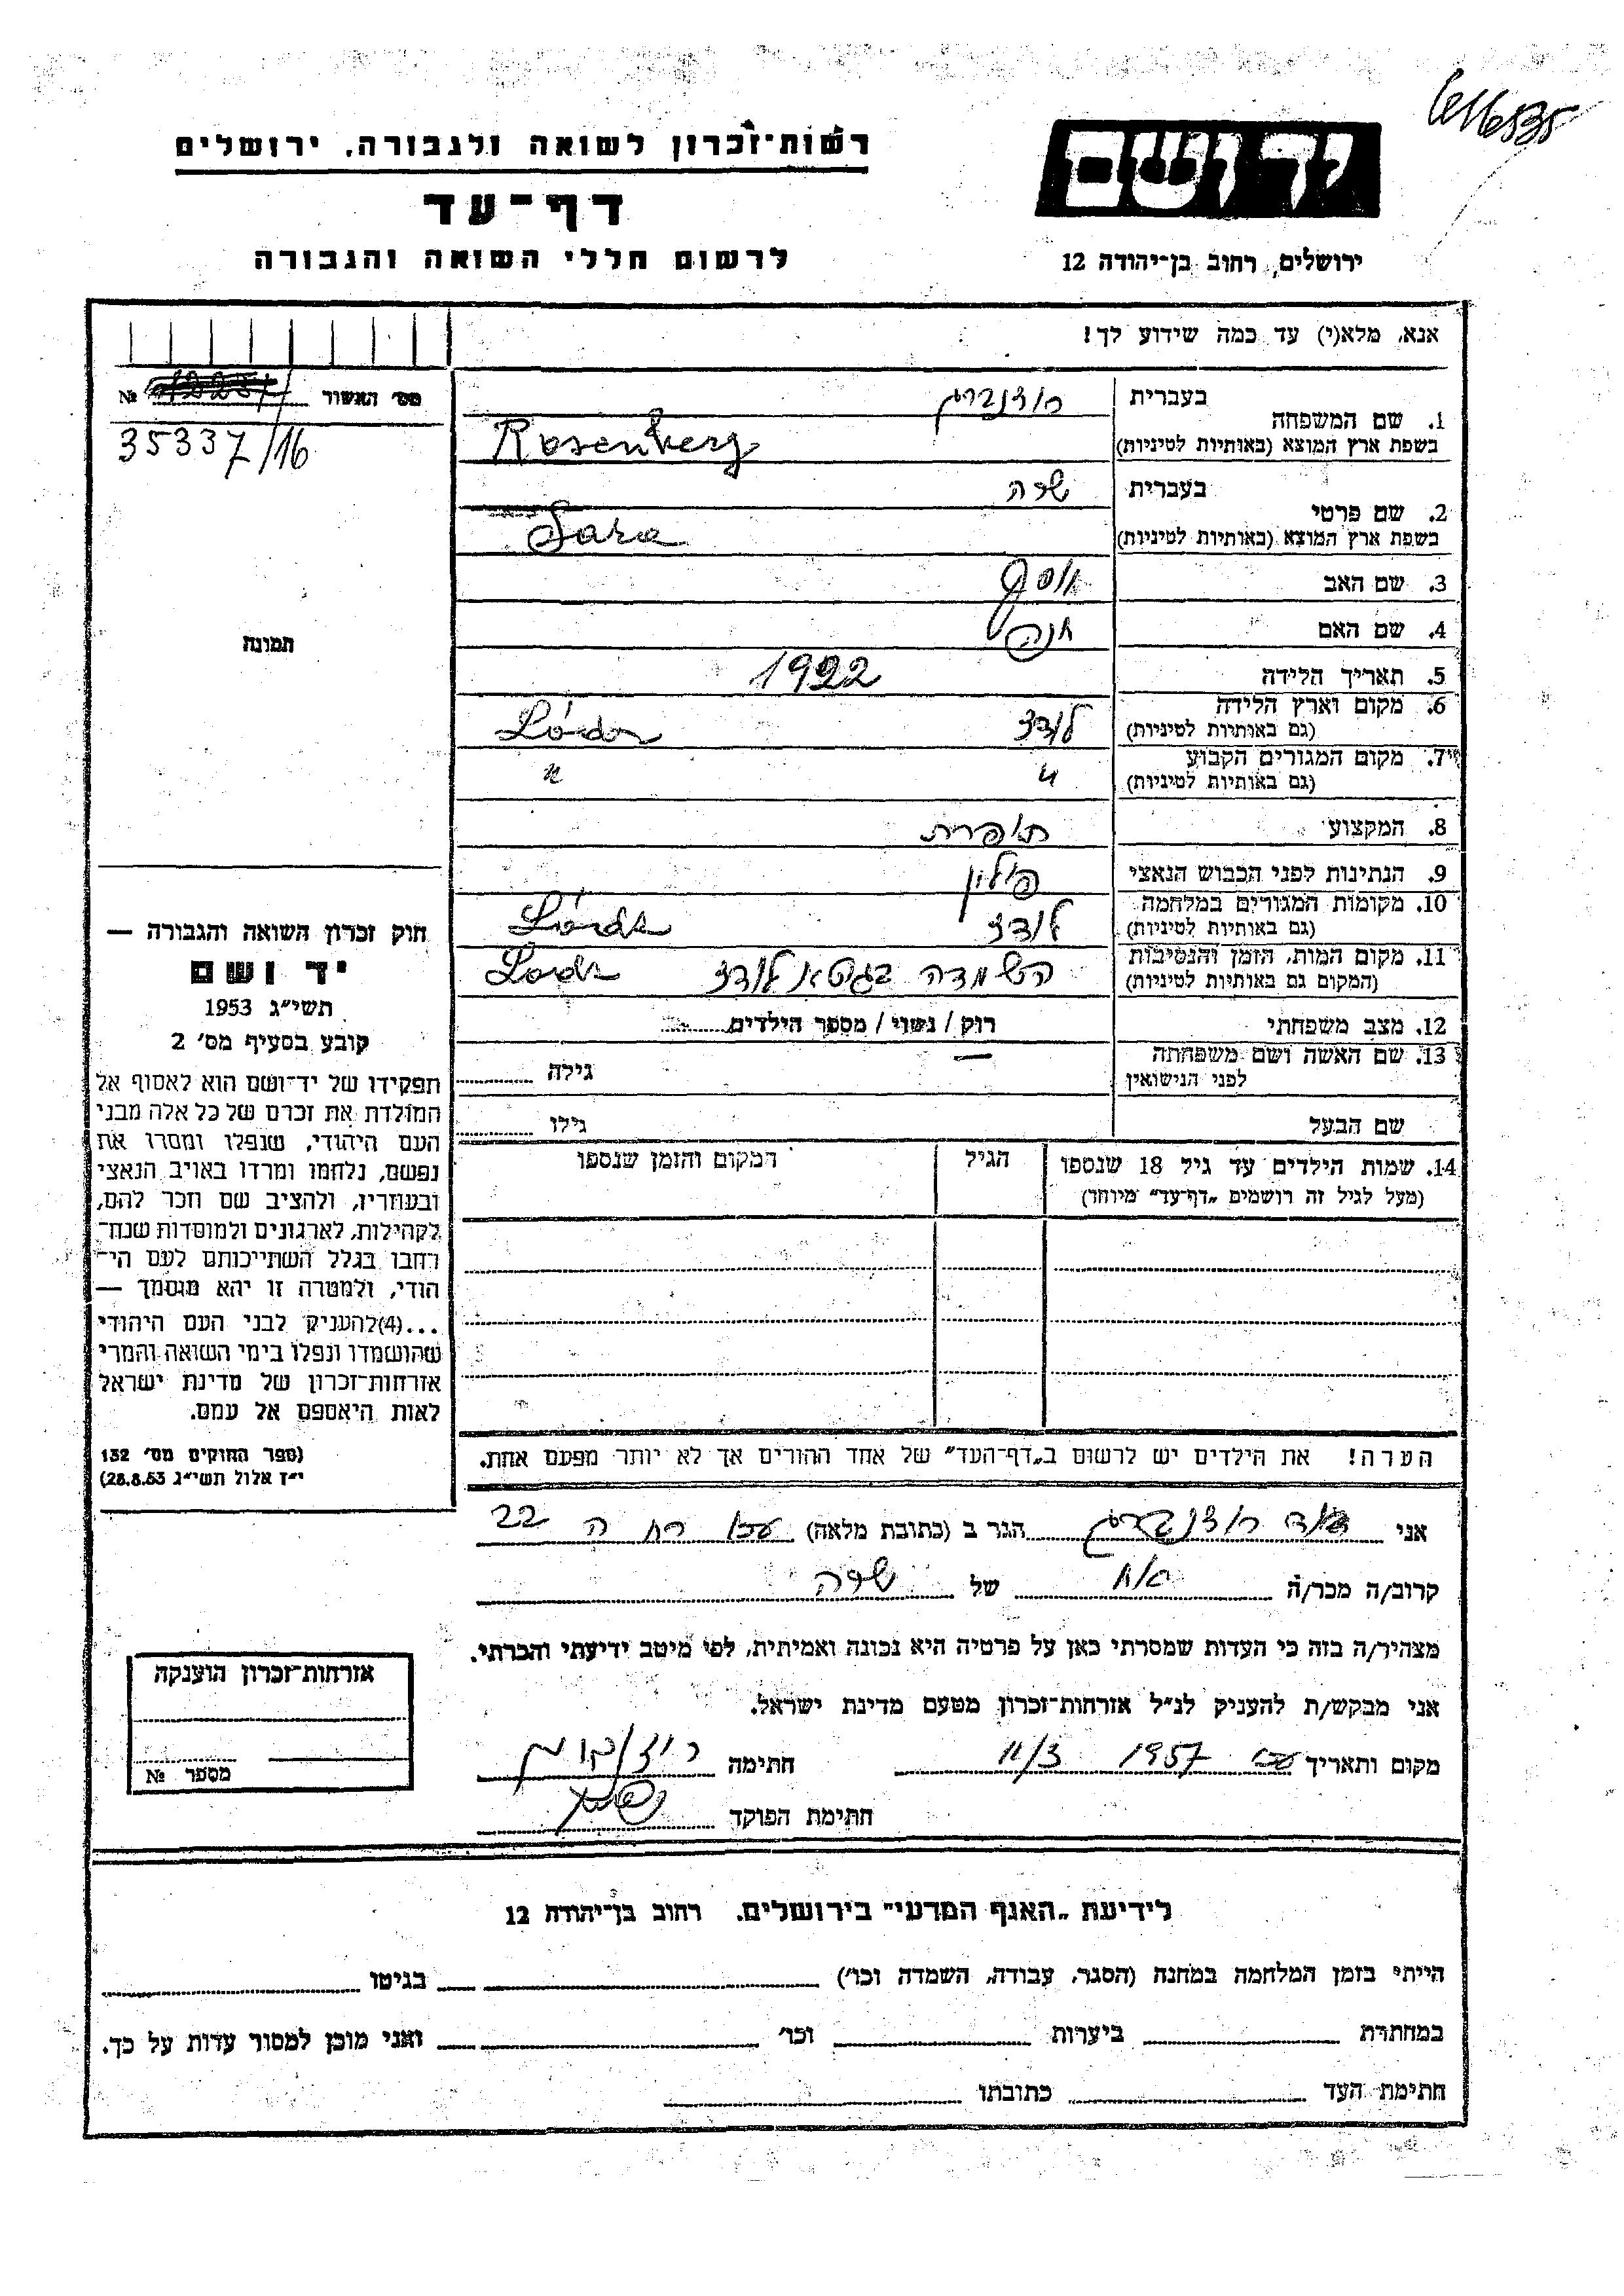 רשות-זכרון לשואה ולגבורה, ירושלים
דף-עד
לרשום חללי השואה והגבורה
ידושם
ירושלים, רחוב בן-יהודה 12
אנא, מלא(י) עד כמה שידוע לך!
מס' האשור №
35337/16
תמונה
חוק זכרון השואה והגבורה —
יד ושם
תשי"ג 1953
קובע בסעיף מס' 2
תפקידו של יד-ושם הוא לאסוף אל
המולדת את זכרם של כל אלה מבני
העם היהודי, שנפלו ומסרו את
נפשם, נלחמו ומרדו באויב הנאצי
ובעוזריו, ולהציב שם וזכר להם,
לקהילות, לארגונים ולמוסדות שנח-
רחבו בגלל השתייכותם לעם הי-
הודי, ולמטרה זו יהא מוסמך —
...(4)להעניק לבני העם היהודי
שהושמדו ונפלו בימי השואה והמרי
אזרחות-זכרון של מדינת ישראל
לאות היאספם אל עמם.
(ספר החוקים מס' 132
י"ז אלול תשי"ג 28.8.53)
1. שם המשפחה בעברית רוזנברג
בשפת ארץ המוצא (באותיות לטיניות) Rosenberg
2. שם פרטי בעברית שרה
בשפת ארץ המוצא (באותיות לטיניות) Sara
3. שם האב יוסף
4. שם האם חנה
5. תאריך הלידה 1922
6. מקום וארץ הלידה
(גם באותיות לטיניות) לודז Lódz
7. מקום המגורים הקבוע
(גם באותיות לטיניות) " "
8. המקצוע תופרת
9. הנתינות לפני הכבוש הנאצי פולין
10. מקומות המגורים במלחמה
(גם באותיות לטיניות) לודז Lódz
11. מקום המות, הזמן והנסיבות
(המקום גם באותיות לטיניות) השמדה בגטא לודז Lodz
12. מצב משפחתי רוק / נשוי / מספר הילדים
13. שם האשה ושם משפחתה
לפני הנישואין — גילה
שם הבעל גילו
14. שמות הילדים עד גיל 18 שנספו הגיל המקום והזמן שנספו
(מעל לגיל זה רושמים "דף-עד" מיוחד)
הערה! את הילדים יש לרשום ב"דף-העד" של אחד ההורים אך לא יותר מפעם אחת.
אני רוזנברג הגר ב (כתובת מלאה) עכו רח ה 22
קרוב/ה מכר/ה אח של שרה
מצהיר/ה בזה כי העדות שמסרתי כאן על פרטיה היא נכונה ואמיתית, לפי מיטב ידיעתי והכרתי.
אני מבקש/ת להעניק לנ"ל אזרחות-זכרון מטעם מדינת ישראל.
מקום ותאריך עכו 1957 11/3 חתימה
חתימת הפוקד
אזרחות-זכרון הוענקה
מספר №
לידיעת "האגף המדעי" בירושלים, רחוב בן-יהודה 12
הייתי בזמן המלחמה במחנה (הסגר, עבודה, השמדה וכו') בגיטו
במחתרת ביערות וכו' ואני מוכן למסור עדות על כך.
חתימת העד כתובתו